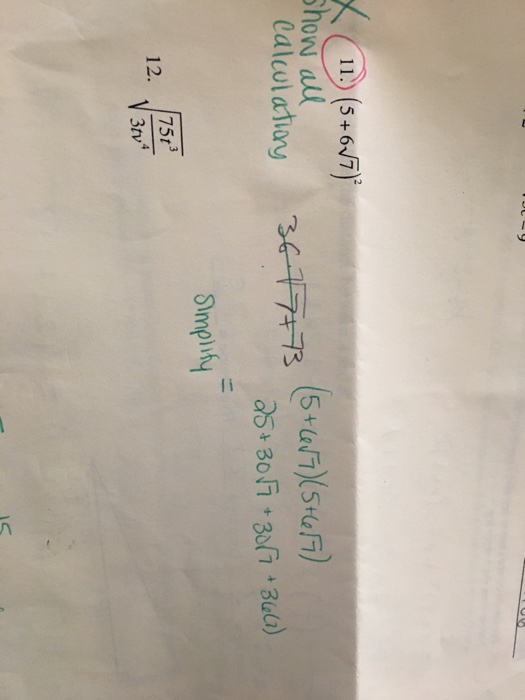 X
11. (5+6√7)²
Show all
calculations
36√7+73
(5+6√7)(5+6√7)
25+30√7+30√7+36(7)
=
Simplify
12. √(75t³/3tv⁴)
15